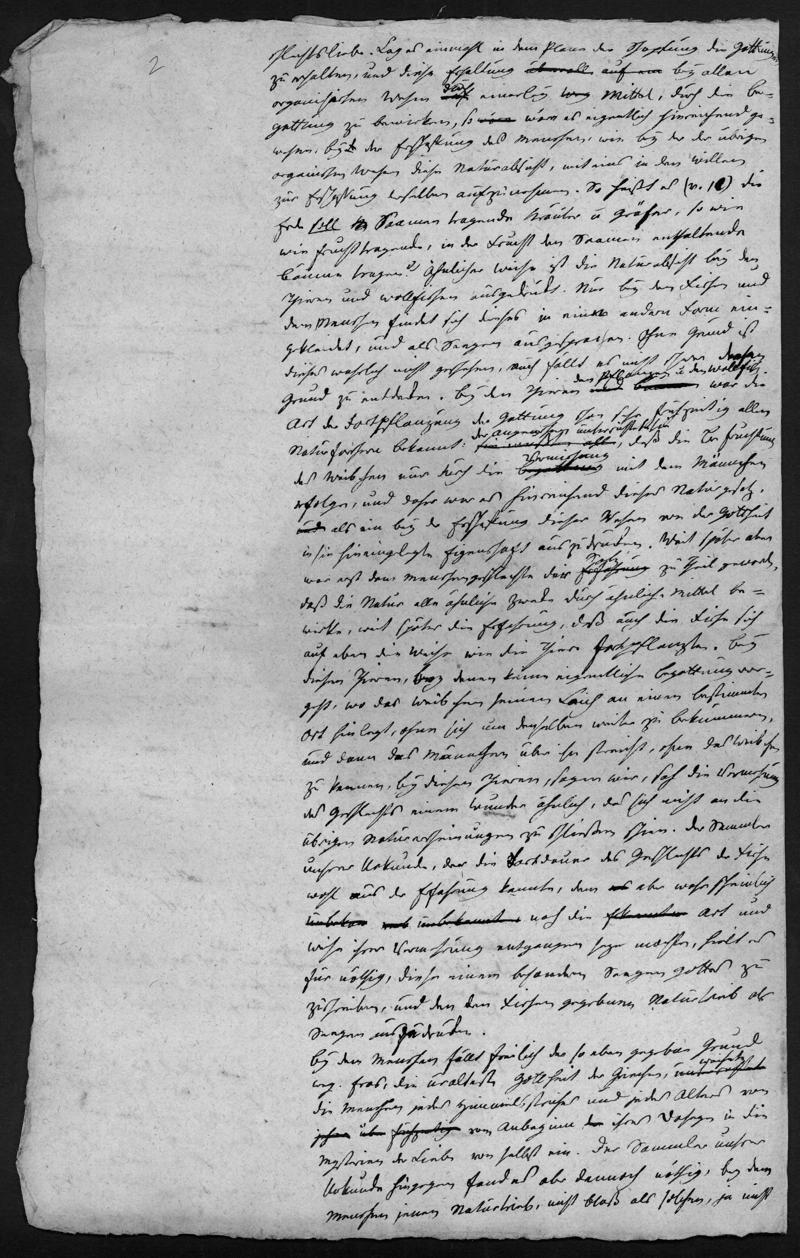 2
schlechtsliebe. Lag es einmahl in dem Plane der Schöpfung die Gattungen
zu erhalten, und diese Erhaltung überall auf ein bey allen
organischen Wesen durch einerley weg Mittel, durch die Be-
gattung zu bewirken, so wäre wäre es eigentlich hinreichend ge-
wesen, bey der Erschaffung des Menschen, wie bey der der übrigen
organischen Wesen diese Naturabsicht, mit eins in den Willen
zur Erschaffung derselben aufzunehmen. So heißt es (v. 11) die
Erde soll Saamen tragende Kräuter u Gräser, so wie
wie fruchttragende, in der Frucht den Saamen enthaltende
Bäume tragen. Ähnlicher weise ist die Naturabsicht bey den
Thieren und Wallfischen ausgedrükt. Nur bey den Fischen und
dem Menschen findet sich dieses in einer andern Form ein-
gekleidet, und als Seegen ausgesprochen. Ohne Grund ist
dieses wahrlich nicht geschehen, auch fällt es nicht schwer diesen
Grund zu entdeken. Bey den Thieren den Pflanzen u den Wallfischen war die
Art der Fortpflanzung der Gattung schon sehr frühzeitig allen
Naturforschern bekannt. der Augenschein unterrichtete sie, daß die Befruchtung
des Weibchen nur durch die Vermischung mit dem Männchen
erfolge, und daher war es hinreichend dieses Naturgesetz,
und als ein bey der Erschaffung dieser Wesen von der Gottheit
in sie hineingelegte Eigenschaft auszudrüken. Weit später aber
war erst dem Menschengeschlechte die Erfahrung zu Theil geworden,
daß die Natur alle ähnliche Zweke durch ähnliche Mittel be-
wirke, weit später die Erfahrung, daß auch die Fische sich
auf eben die Weise wie die Thiere fortpflanzten. Bey
diesen Thieren, bey denen keine eigentliche Begattung vor-
geht, wo das Weibchen seinen Laich an einen bestimmten
Ort hinlegt, ohne sich um denselben weiter zu bekümmern,
und dann das Männchen über ihn streicht, ohne das Weibchen
zu kennen, bey diesen Thieren, sagen wir, sah die Vermehrung
des Geschlechts einem Wunder ähnlich, das sich nicht an die
übrigen Naturerscheinungen zu schließen schien. Der Sammler
unsrer Urkunde, der die Fortdauer des Geschlechts der Fische
wohl aus der Erfahrung kannte, dem aber wahrscheinlich
unbekan unbekannte noch die Art und
weise ihrer Vermehrung entgangen seyn mochte, hielt es
für nöthig, diese einem besondern Seegen Gottes zu
zuschreiben, und den den Fischen gegebenen Naturtrieb als
Seegen auszudrüken.
Bey dem Menschen fällt freilich der so eben gegebene Grund
weg. Eros, die uralteste Gottheit der Griechen, weihete
die Menschen jedes Himmelsstriches und jedes Alters von
von Anbeginn ihres Daseyns in die
Mysterien der Liebe von selbst ein. Der Sammler unsrer
Urkunde hingegen fand es aber dennoch nöthig, bey dem
Menschen jenen Naturtrieb, nicht bloß als solchen, ja nicht